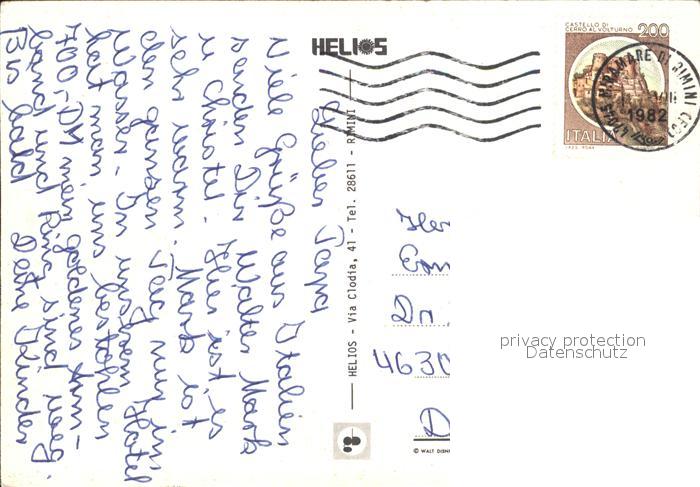 Lieber Papa
Viele Grüße aus Italien
senden Dir Walter Mark
u Christel. Hier ist es
sehr warm. Mark ist
den ganzen Tag nur im
Wasser. In unserem Hotel
hat man uns bestohlen
700,-DM mein goldenes Arm-
band und Ring sind weg.
Bis bald Deine Kinder
HELIOS
HELIOS - Via Clodia, 41 - Tel. 28611 - RIMINI
CASTELLO DI
CERRO AL VOLTURNO 200
ITALIA
MIRAMARE DI RIMINI
1982
Her
Dr
4630
D
© WALT DISN
privacy protection
Datenschutz